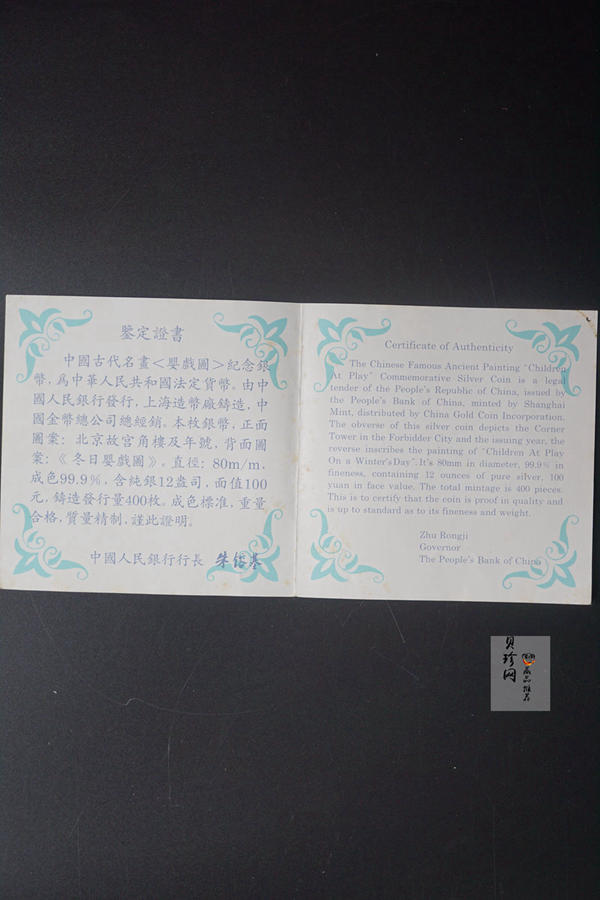 鑒定證書
中國古代名畫<嬰戲圖>紀念銀
幣,爲中華人民共和國法定貨幣。由中
國人民銀行發行,上海造幣廠鑄造,中
國金幣總公司總經銷。本枚銀幣,正面
圖案:北京故宮角樓及年號,背面圖
案:《冬日嬰戲圖》。直徑:80m/m,
成色99.9%,含純銀12盎司,面值100
元,鑄造發行量400枚。成色標准,重量
合格,質量精制,謹此證明。
中國人民銀行行長 朱鎔基
Certificate of Authenticity
The Chinese Famous Ancient Painting "Children
At Play" Commemorative Silver Coin is a legal
tender of the People's Republic of China, issued by
the People's Bank of China, minted by Shanghai
Mint, distributed by China Gold Coin Incorporation.
The obverse of this silver coin depicts the Corner
Tower in the Forbidder City and the issuing year, the
reverse inscribes the painting of "Children At Play
On a Winter'sDay". It's 80mm in diameter, 99.9% in
fineness, containing 12 ounces of pure silver, 100
yuan in face value. The total mintage is 400 pieces.
This is to certify that the coin is proof in quality and
is up to standard as to its fineness and weight.
Zhu Rongji
Governor
The People's Bank of China
贝珍网
藏品推荐